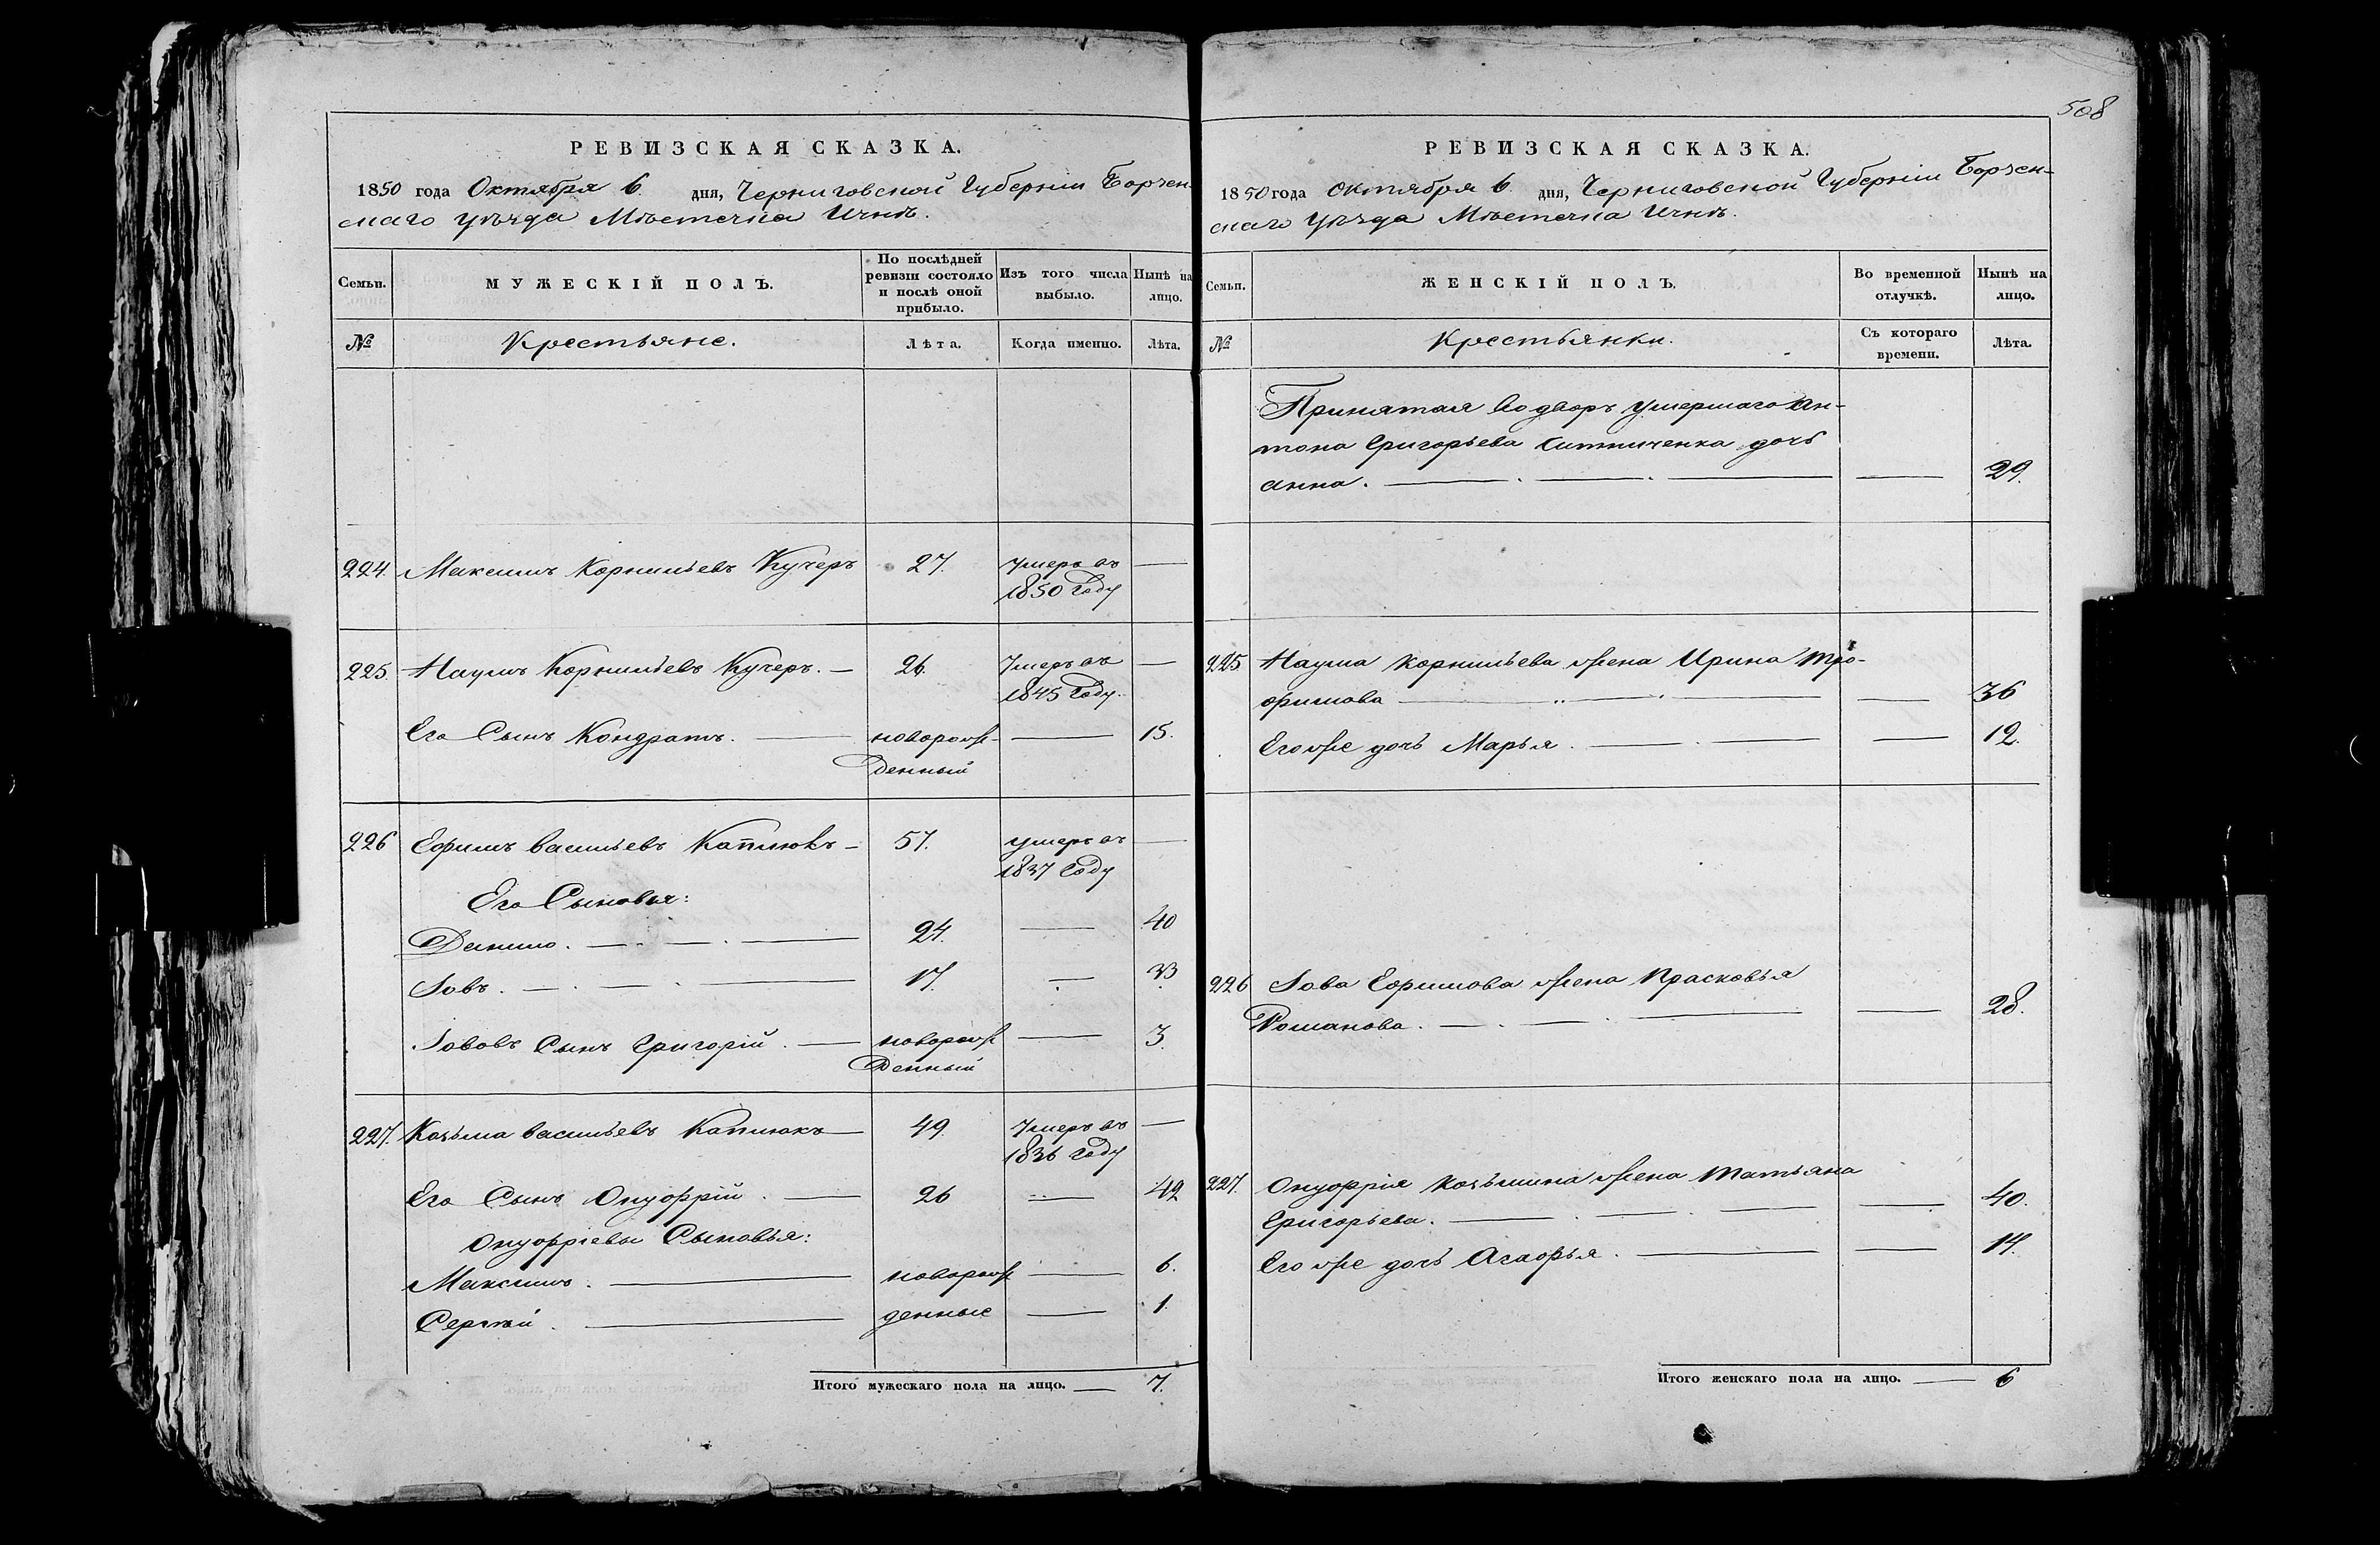 508
РЕВИЗСКАЯ СКАЗКА.
1850 года Октября 6 дня, Черниговской Губерніи Борзен-
скаго уѣзда Мѣстечка Ични.
Семьи.
МУЖЕСКІЙ ПОЛЪ.
По послѣдней
ревизіи состояло
и послѣ оной
прибыло.
Изъ того числа
выбыло.
Нынѣ на
лицо.
№
Крестьяне.
Лѣта.
Когда именно.
Лѣта.
224. Максимъ Корнильевъ Кучеръ 27. Умеръ въ —
1850 Году
225. Наумъ Корнильевъ Кучеръ. — 26. Умеръ въ —
1845 Году.
Его Сынъ Кондратъ. — новорож- — 15.
денный
226 Ефимъ Васильевъ Каплюкъ — 57. умеръ въ —
1837 Году
Его Сыновья:
Данило. — 24. — 40
Іовъ. — 17. — 33
Іововъ Сынъ Григорій. — новорож — 3.
денный
227. Козьма Васильевъ Каплюкъ — 49. Умеръ въ —
1836 Году
Его Сынъ Онуфрій. — 26 — 42
Онуфріевы Сыновья:
Максимъ. — новорож — 6.
Сергѣй. — денные — 1.
Итого мужескаго пола на лицо. — 7.
РЕВИЗСКАЯ СКАЗКА.
1850 года Октября 6 дня, Черниговской Губерніи Борзен-
скаго Уѣзда Мѣстечка Ични.
Семьи.
ЖЕНСКІЙ ПОЛЪ.
Во временной
отлучкѣ.
Нынѣ на
лицо.
№
Крестьянки.
Съ котораго
времени.
Лѣта.
Принятая во дворъ умершаго Ан-
тона Григорьева Ситниченка дочь
Анна. — — 29.
225 Наума Корнильева жена Ирина Тро-
фимова — — 36
Его же дочь Марья. — — 12.
226 Іова Ефимова жена Прасковья
Романова. — — 28.
227. Онуфрія Козьмина жена Татьяна
Григорьева. — — 40.
Его же дочь Агафья. — — 14.
Итого женскаго пола на лицо. — 6